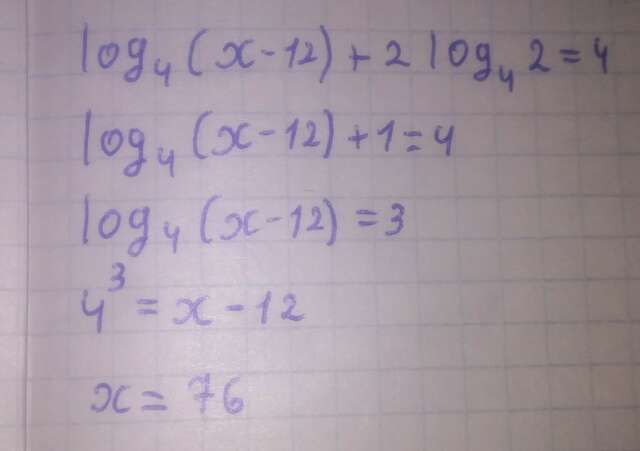 log₄(x-12)+2log₄2=4
log₄(x-12)+1=4
log₄(x-12)=3
4³=x-12
x=76